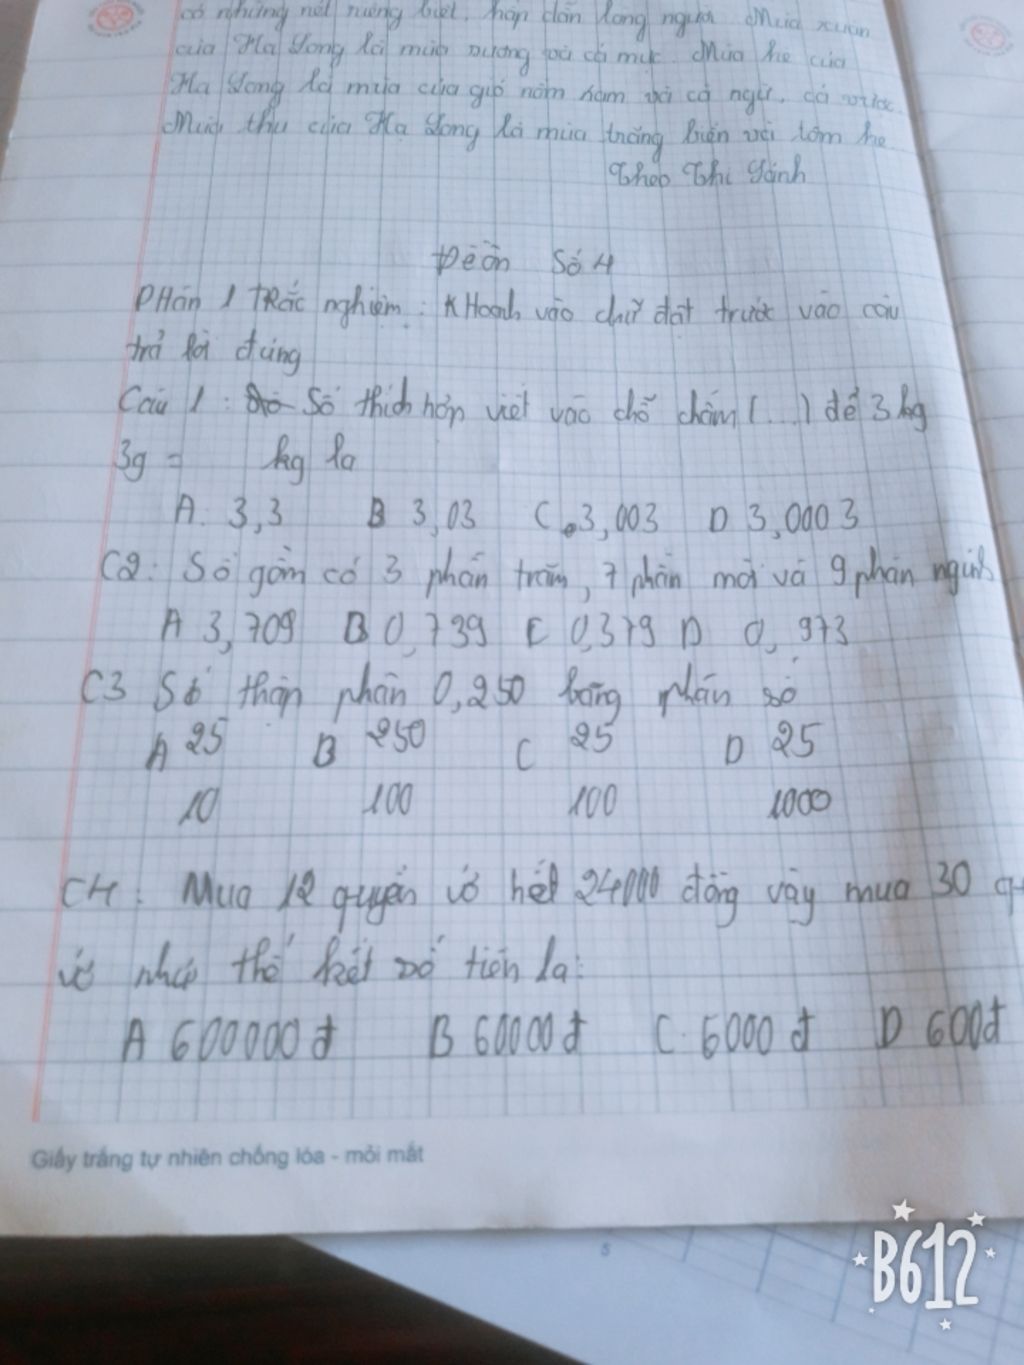 có những nét riêng biệt, hấp dẫn lòng người. Mùa xuân
của Hạ Long là mùa sương và cá mực. Mùa hè của
Hạ Long là mùa của gió nồm nam và cá ngừ, cá vược.
Mùa thu của Hạ Long là mùa trăng biển và tôm he
Theo Thi Sảnh
Đề ôn Số 4
PHần 1 TRắc nghiệm : KHoanh vào chữ đặt trước vào câu
trả lời đúng
Câu 1 : Số thích hợp viết vào chỗ chấm (...) để 3kg
3g = kg la
A. 3,3 B 3,03 C. 3,003 D 3,0003
C2: Số gồm có 3 phần trăm, 7 phần mời và 9 phần nghìn
A 3,709 B 0,739 C 0,379 D 0,973
C3 Số thập phân 0,250 bằng phân số
A 25 B 250 C 25 D 25
10 100 100 1000
C4: Mua 12 quyển vở hết 24000 đồng vậy mua 30
vở như thế hết số tiền la:
A 600000đ B 60000đ C. 6000đ D 600đ
Giấy trắng tự nhiên chống lóa - mỏi mắt
B612